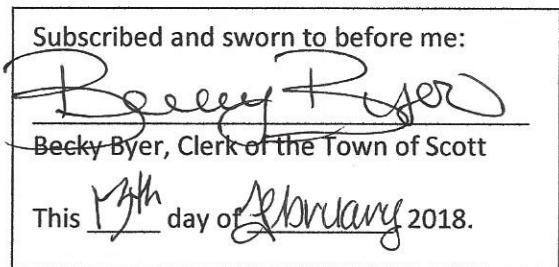 Subscribed and sworn to before me:
Becky Byer
Becky Byer, Clerk of the Town of Scott
This 13th day of February 2018.